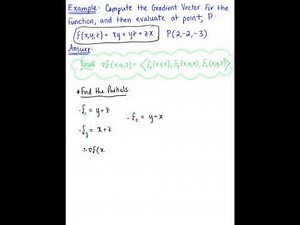 Example: Compute the Gradient Vector for the
function, and then evaluate at point, P.
f(x,y,z) = xy + yz + zx P(2,-2,-3)
Answer:
Recall ∇f(x,y,z) = <fx(x,y,z), fy(x,y,z), fz(x,y,z)>
* Find the Partials:
- fx = y+z
- fz = y+x
- fy = x+z
∴ ∇f(x